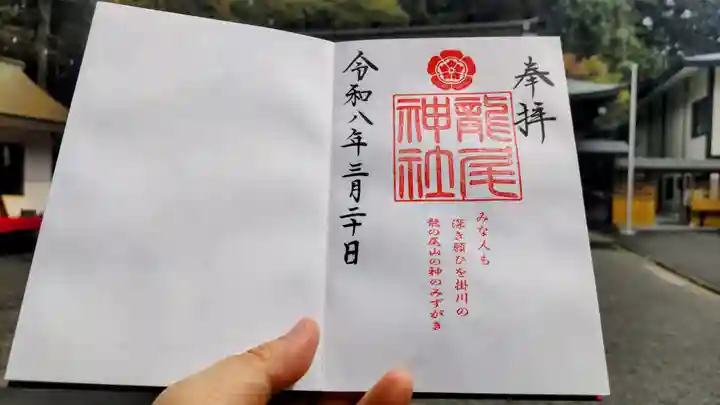 奉拝
龍尾
神社
みな人も
深き願ひを掛川の
龍の尾山の神のみずがき
令和八年三月二十日